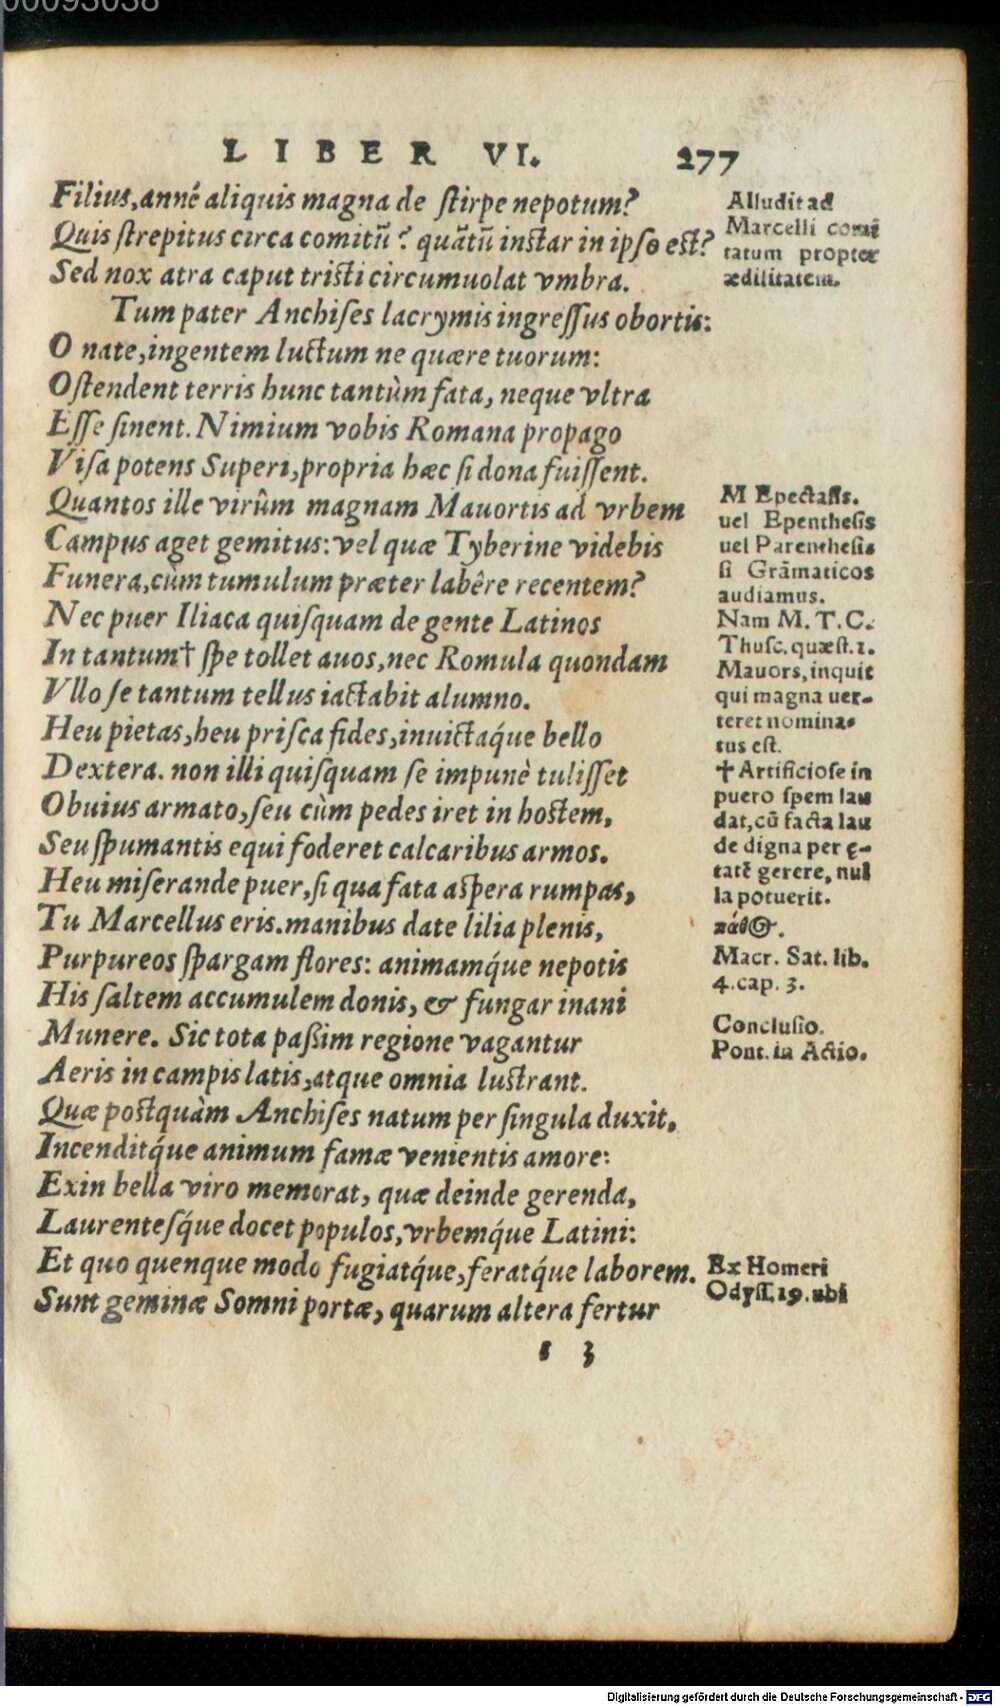 00093038
LIBER VI. 277
Filius, anné aliquis magna de stirpe nepotum?
Quis strepitus circa comitũ? quãtũ instar in ipso est?
Sed nox atra caput tristi circumuolat vmbra.
Tum pater Anchises lacrymis ingressus obortis:
O nate, ingentem luctum ne quære tuorum:
Ostendent terris hunc tantùm fata, neque vltra
Esse sinent. Nimium vobis Romana propago
Visa potens Superi, propria hæc si dona fuissent.
Quantos ille virûm magnam Mauortis ad vrbem
Campus aget gemitus: vel quæ Tyberine videbis
Funera, cùm tumulum præter labêre recentem?
Nec puer Iliaca quisquam de gente Latinos
In tantum† spe tollet auos, nec Romula quondam
Vllo se tantum tellus iactabit alumno.
Heu pietas, heu prisca fides, inuictaq́ue bello
Dextera. non illi quisquam se impunè tulisset
Obuius armato, seu cùm pedes iret in hostem,
Seu spumantis equi foderet calcaribus armos.
Heu miserande puer, si qua fata aspera rumpas,
Tu Marcellus eris. manibus date lilia plenis,
Purpureos spargam flores: animamq́ue nepotis
His saltem accumulem donis, & fungar inani
Munere. Sic tota paßim regione vagantur
Aeris in campis latis, atque omnia lustrant.
Quæ postquàm Anchises natum per singula duxit,
Incenditq́ue animum famæ venientis amore:
Exin bella viro memorat, quæ deinde gerenda,
Laurentesq́ue docet populos, vrbemq́ue Latini:
Et quo quenque modo fugiatq́ue, feratq́ue laborem.
Sunt geminæ Somni portæ, quarum altera fertur
s 3
Alludit ad
Marcelli comi
tatum propter
ædilitatem.
M Epectasis.
uel Epenthesis
uel Parenthesis
si Grãmaticos
audiamus.
Nam M. T. C.
Thusc. quæst. 1.
Mauors, inquit
qui magna uer-
teret nomina-
tus est.
† Artificiose in
puero spem lau
dat, cũ facta lau
de digna per ę-
tatẽ gerere, nul
la potuerit.
πάθος.
Macr. Sat. lib.
4. cap. 3.
Conclusio.
Pont. in Actio.
Ex Homeri
Odyss. 19. ubi
Digitalisierung gefördert durch die Deutsche Forschungsgemeinschaft - DFG